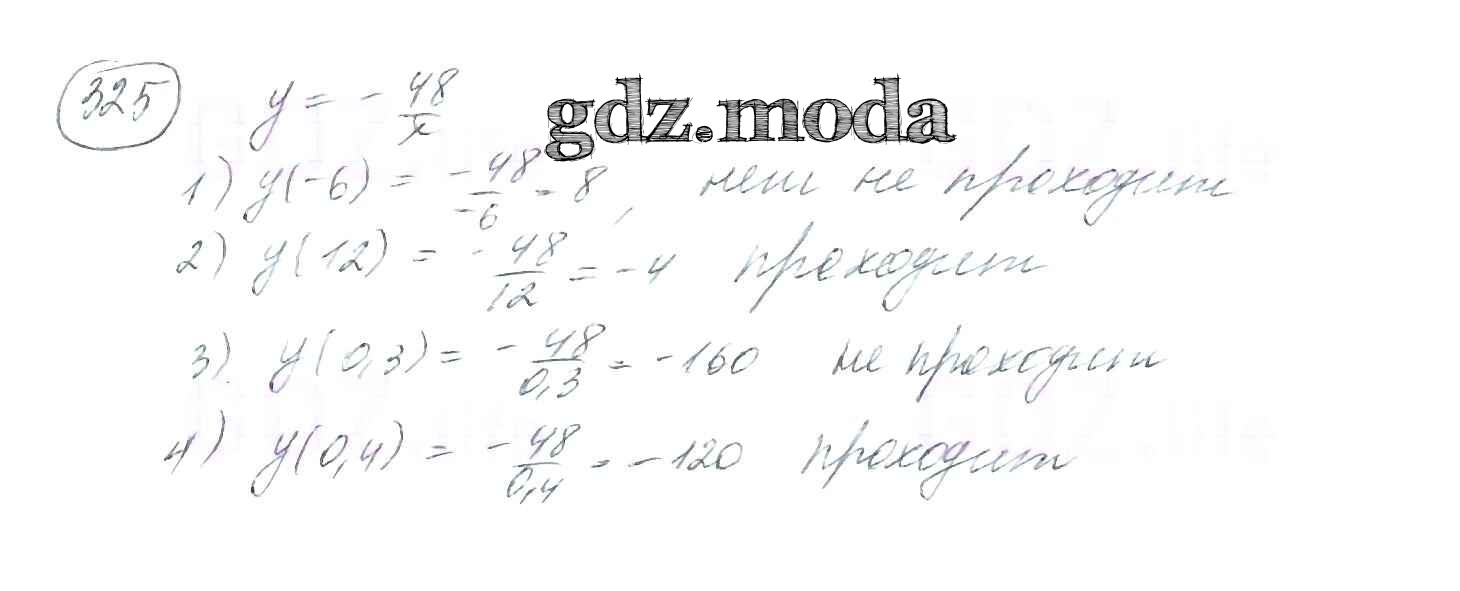 325 y = - 48/x
gdz.moda
1) y(-6) = -48/-6 = 8, нет не проходит
2) y(12) = -48/12 = -4 проходит
3) y(0,3) = -48/0,3 = -160 не проходит
4) y(0,4) = -48/0,4 = -120 проходит